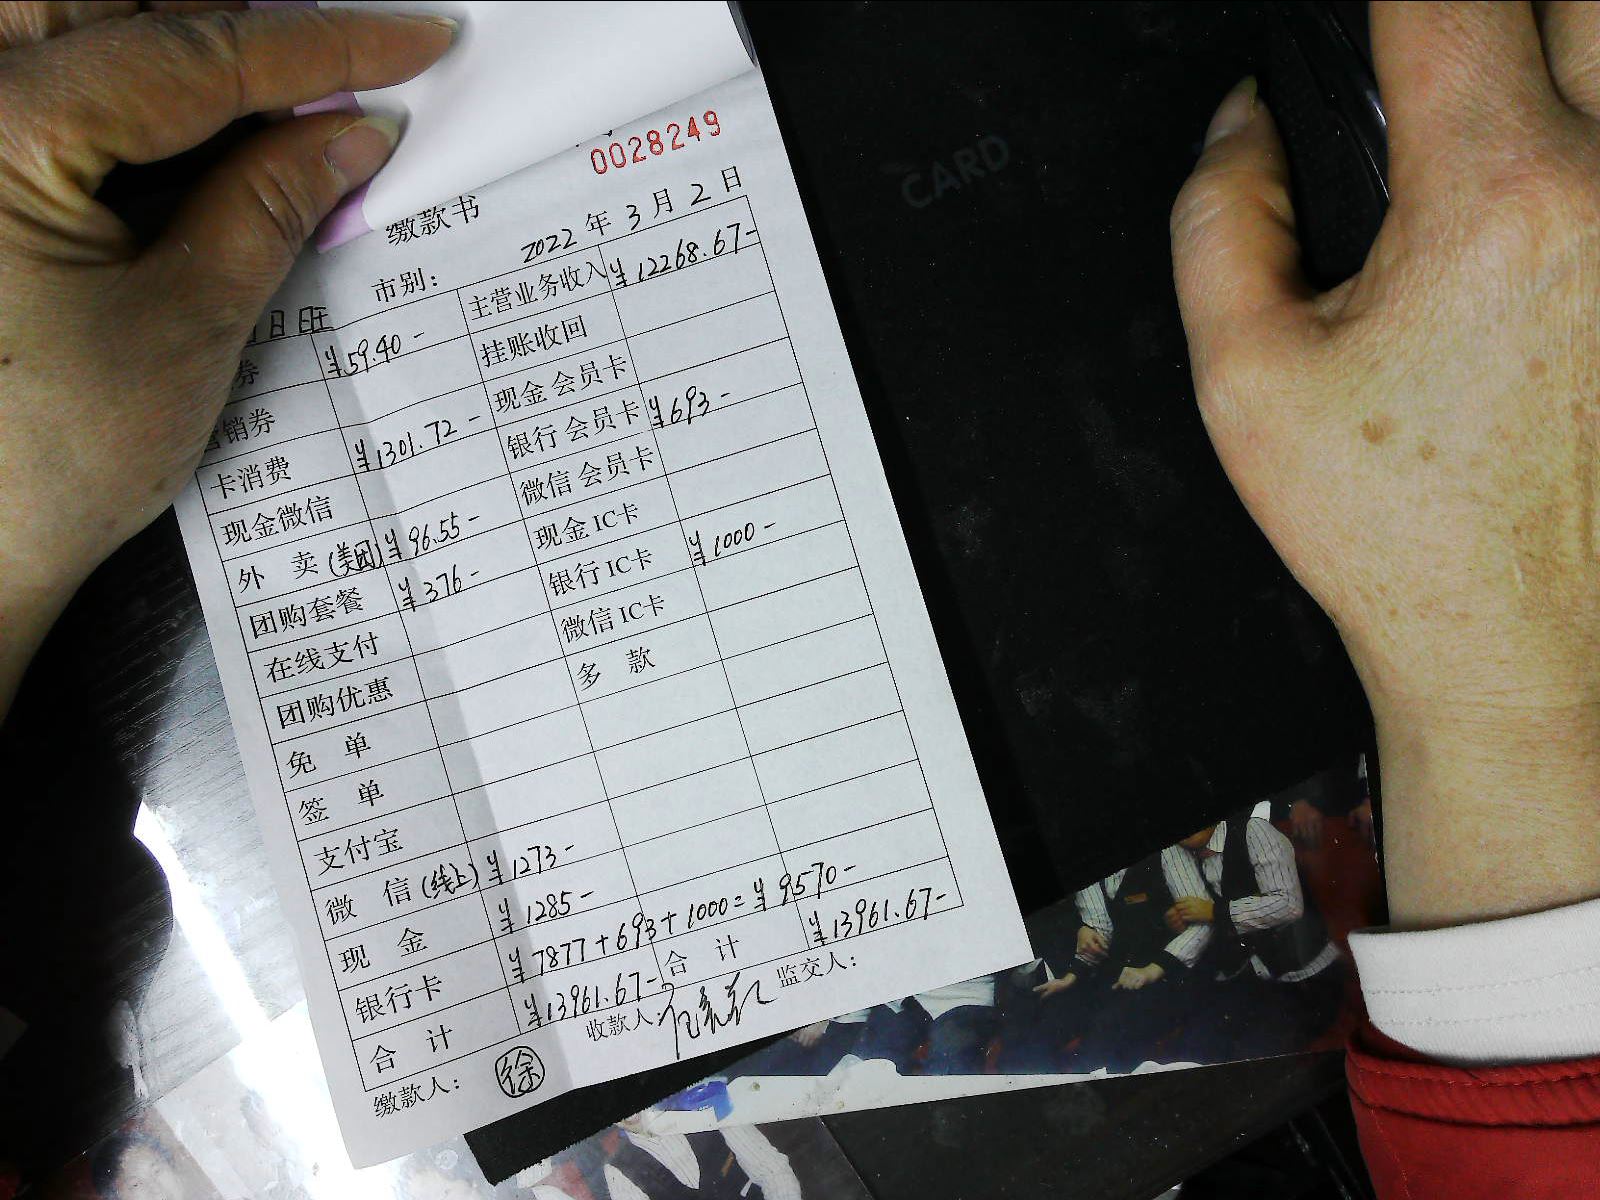 0028249
缴款书
2022年3月2日
市别：
日旺
主营业务收入 ¥12268.67-
券 ¥59.40-
挂账收回
销券
现金 会员卡
卡消费 ¥1301.72-
银行 会员卡 ¥693-
现金微信
微信 会员卡
外 卖(美团) ¥96.55-
现金 IC卡
团购套餐 ¥376-
银行 IC卡 ¥1000-
在线支付
微信 IC卡
团购优惠
多 款
免 单
签 单
支付宝
微 信(线上) ¥1273-
现 金 ¥1285-
银行卡 ¥7877+693+1000=¥9570-
合 计 ¥13961.67-
合 计 ¥13961.67-
缴款人： 徐
收款人：
监交人：
CARD